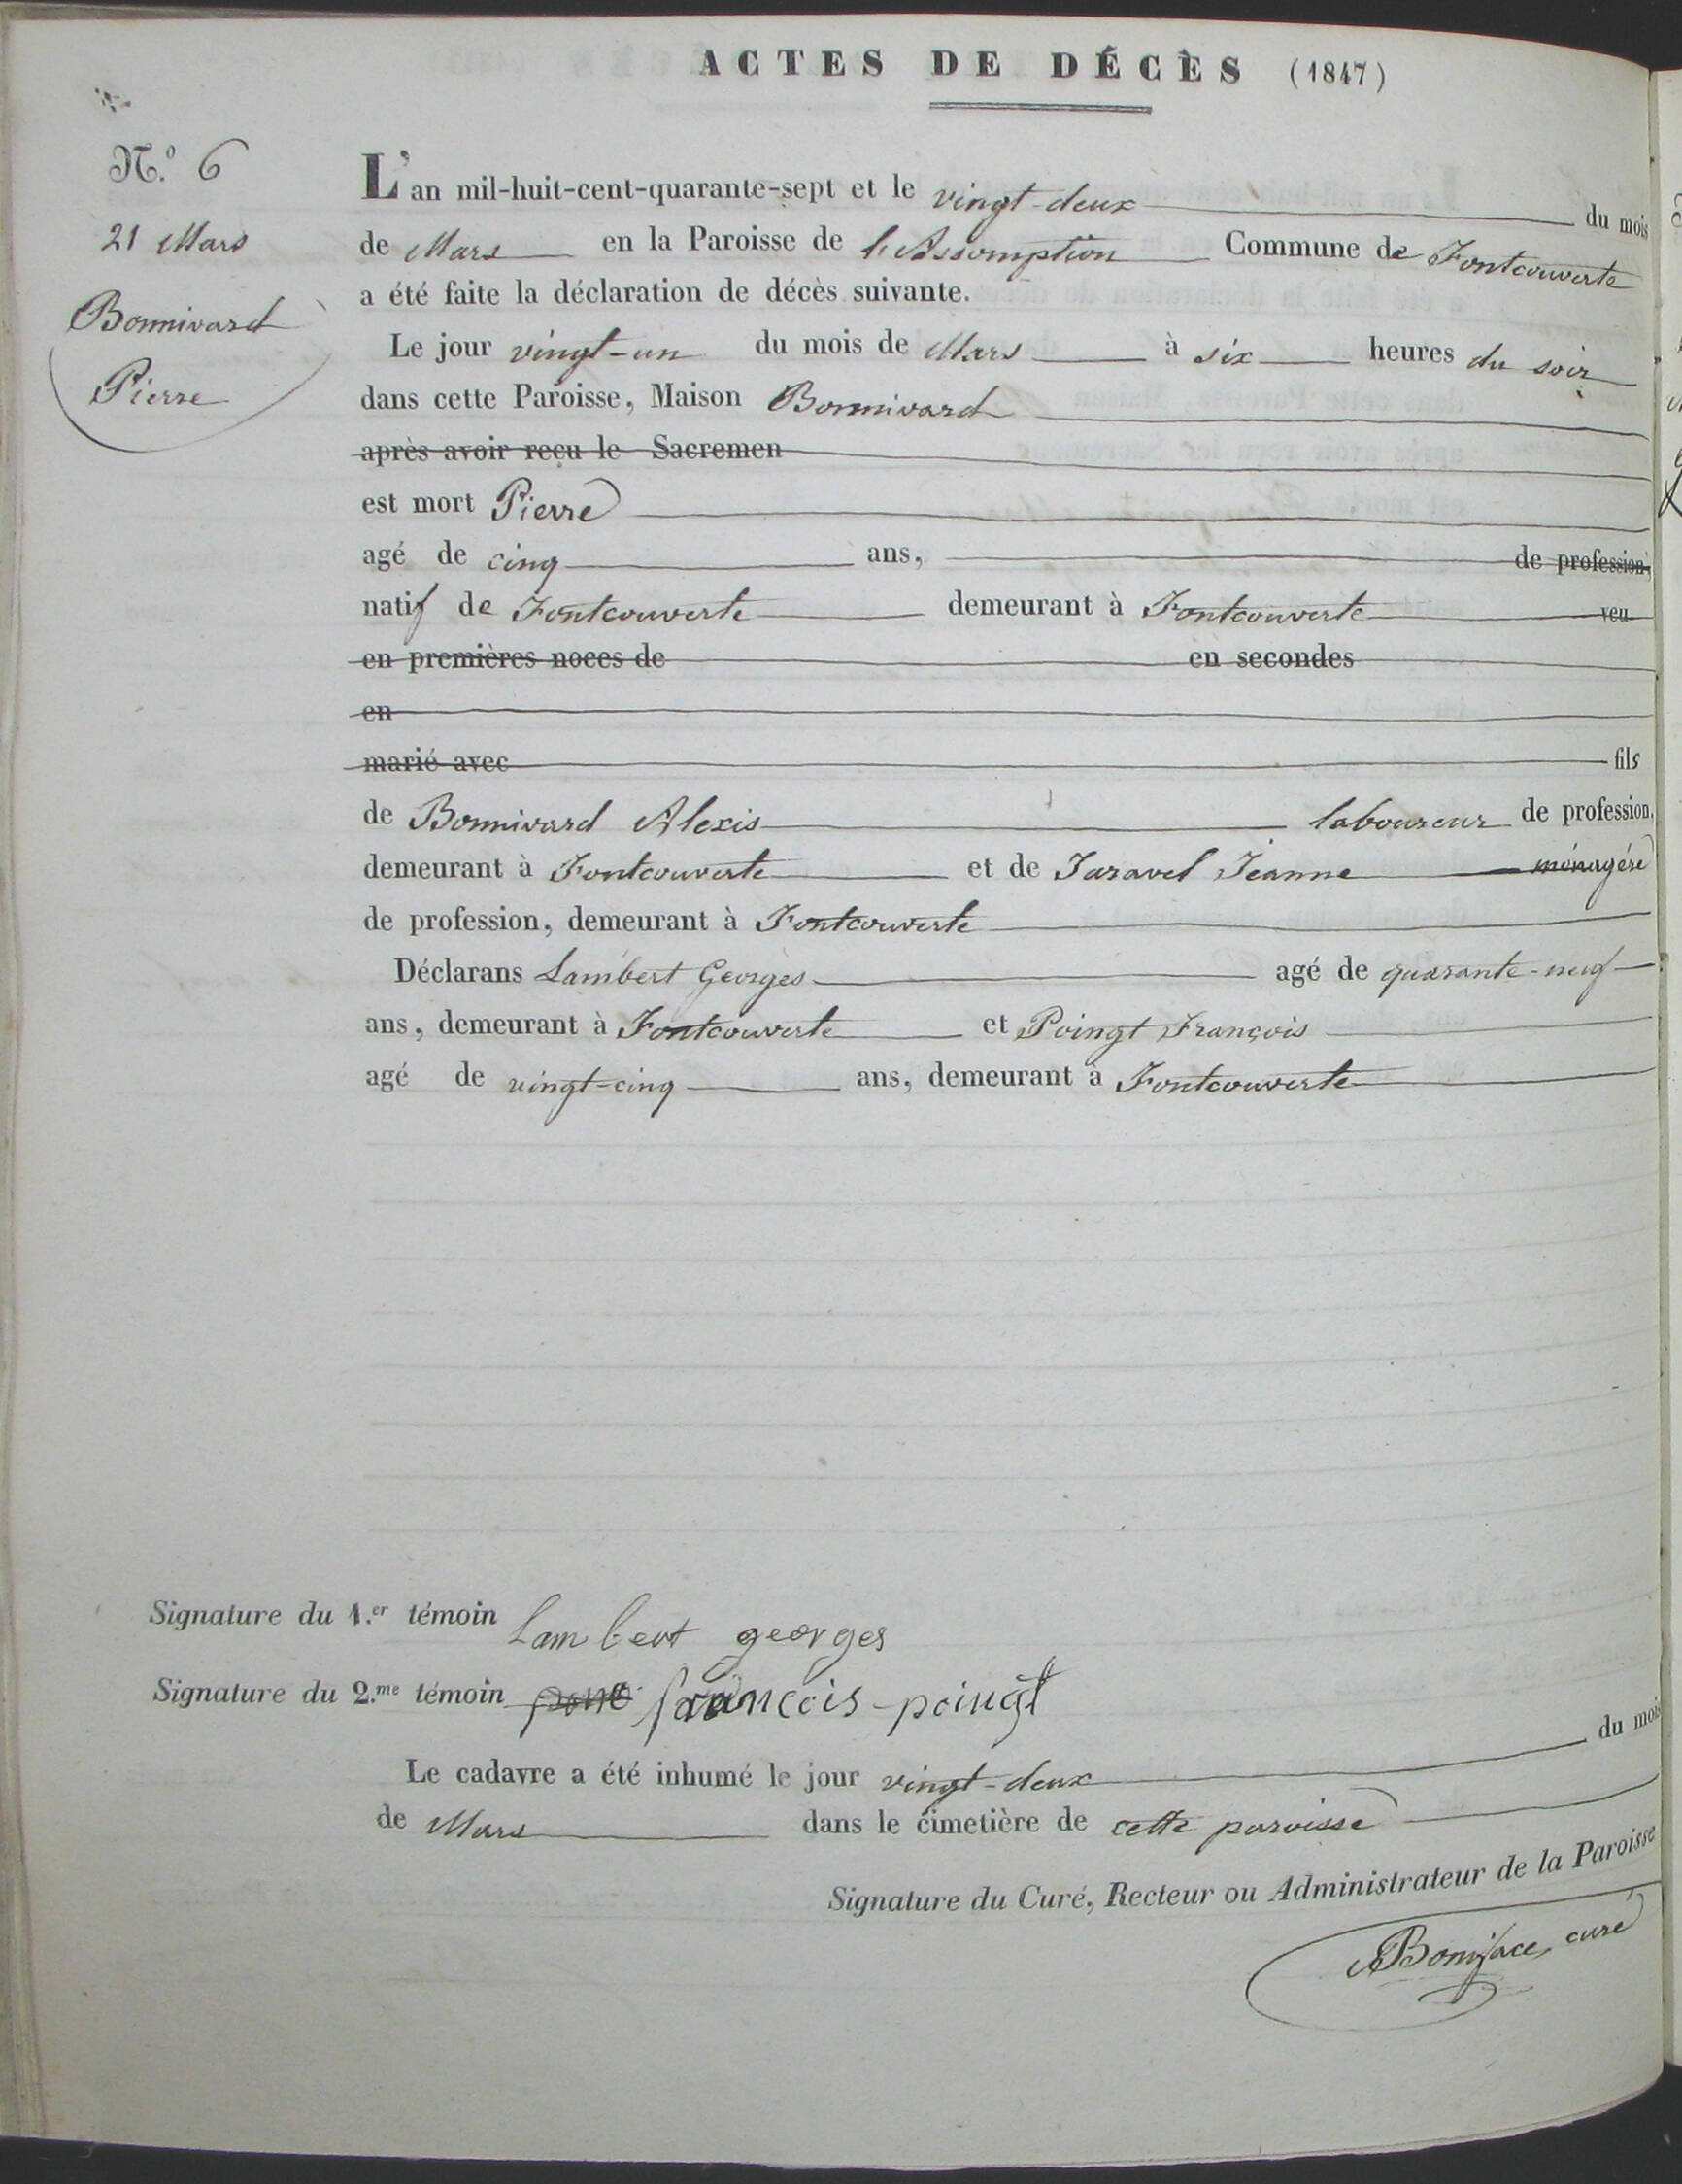 ACTES DE DÉCÈS (1847)
N.º 6
21 Mars
Bonnivard
Pierre
L'an mil-huit-cent-quarante-sept et le vingt-deux du mois
de Mars en la Paroisse de l'Assomption Commune de Fontcouverte
a été faite la déclaration de décès suivante.
Le jour vingt-un du mois de Mars à six heures du soir
dans cette Paroisse, Maison Bonnivard
après avoir reçu le Sacremen
est mort Pierre
agé de cinq ans, de profession,
natif de Fontcouverte demeurant à Fontcouverte veu
en premières noces de en secondes
en
marié avec fils
de Bonnivard Alexis laboureur de profession,
demeurant à Fontcouverte et de Taravel Jeanne ménagère
de profession, demeurant à Fontcouverte
Déclarans Lambert Georges agé de quarante-neuf
ans, demeurant à Fontcouverte et Poingt François
agé de vingt-cinq ans, demeurant à Fontcouverte
Signature du 1.er témoin Lambert georges
Signature du 2.me témoin francois-poingt
Le cadavre a été inhumé le jour vingt-deux du mois
de Mars dans le cimetière de cette paroisse
Signature du Curé, Recteur ou Administrateur de la Paroisse
Boniface, curé